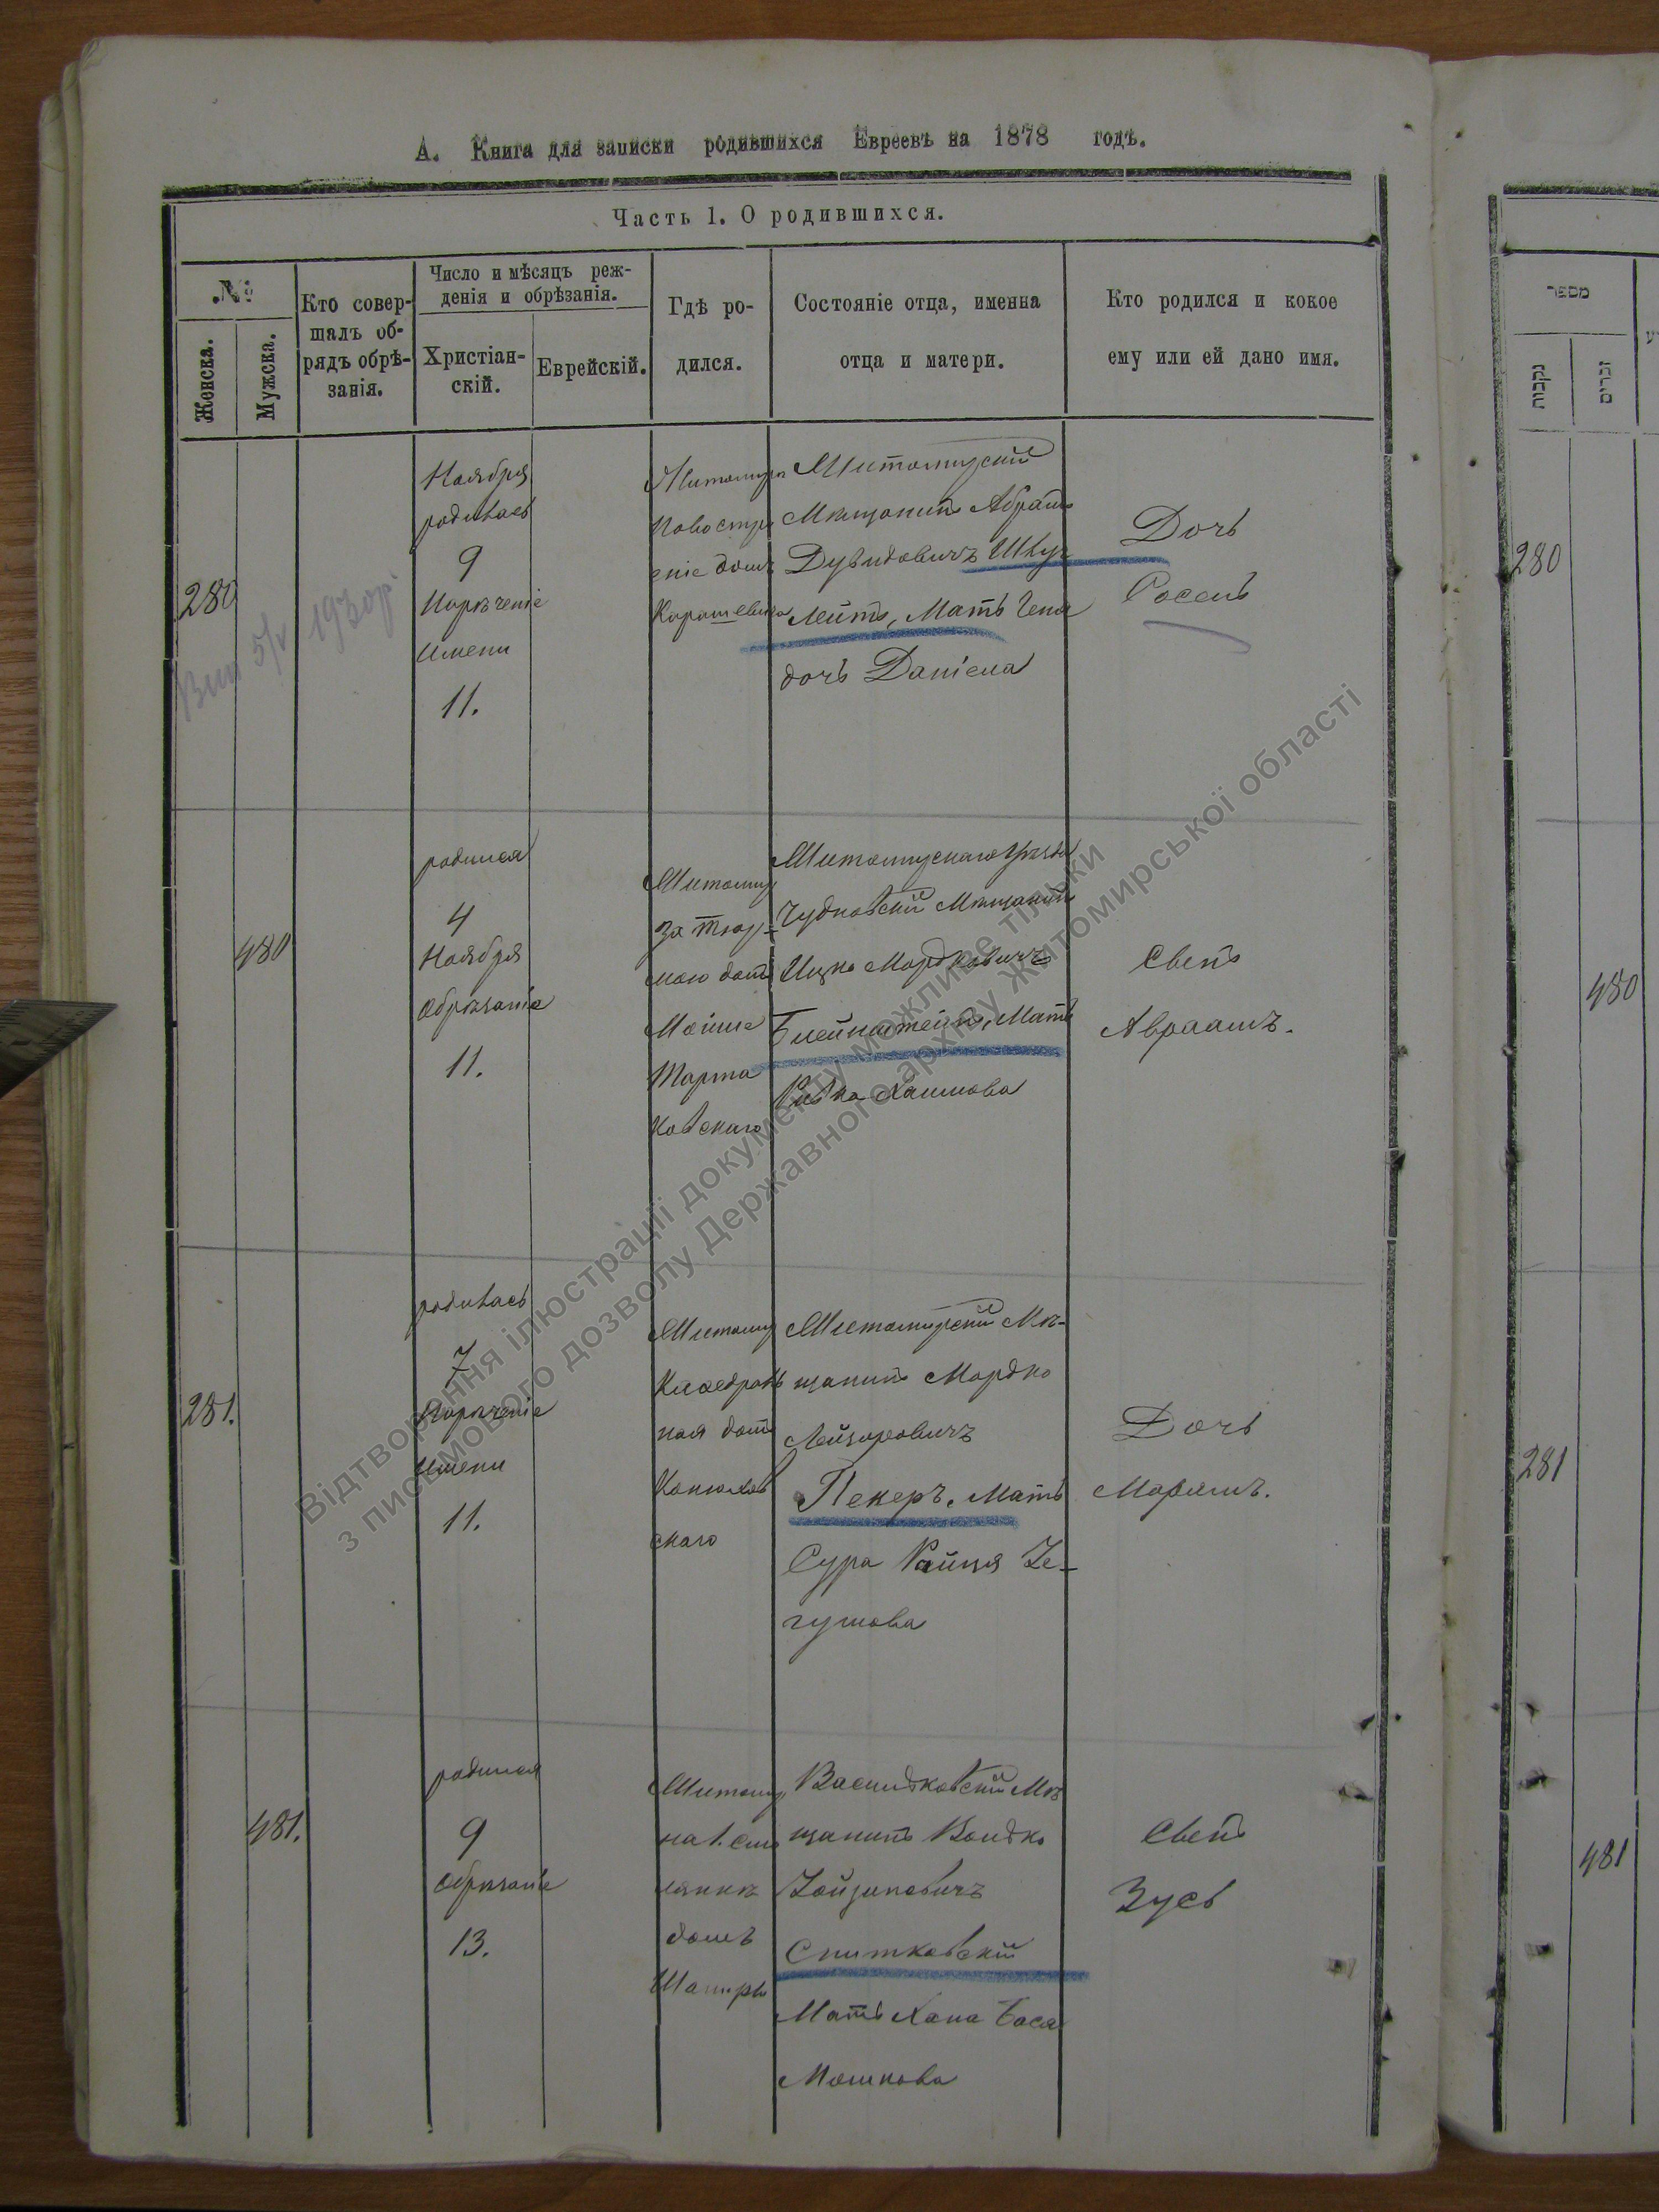 А. Книга для записки родившихся Евреевъ на 1878 годъ.
Часть 1. О родившихся.
№
Женска.
Мужска.
Кто совер-
шалъ об-
рядъ обрѣ-
занія.
Число и мѣсяцъ реж-
денія и обрѣзанія.
Христіан-
скій.
Еврейскій.
Гдѣ ро-
дился.
Состояніе отца, именна
отца и матери.
Кто родился и кокое
ему или ей дано имя.
280
Ноября
родилась
9
Нарѣченіе
Имени
11.
Житомиръ
новостро
еніе домъ
Житомирскій
Мѣщанинъ Абрамъ
Дувидовичъ
Лейтъ, Мать
дочь Даніела
Дочь
480
родился
4
Ноября
Обрѣзаніе
11.
Житомир
за тюр-
мою домъ
Мойше
Житомирскаго уѣзда
Чудновскій Мѣщанинъ
Ицко Мордковичъ
Блейнштейнъ, Мать
Ривка Хаимова
Свенъ
Авраамъ.
281.
родилась
7
Нарѣченіе
Имени
11.
Житомир
Кафедраль
ная домъ
скаго
Житомирскій Мѣ-
щанинъ Мордко
Лейзоровичъ
Пекеръ. Мать
Сура
Дочь
Маріамъ.
481.
родился
9
Обрѣзаніе
13.
Житомир
домъ
Шапиры
Васильковскій Мѣ
щанинъ Волдко
Зойзиновичъ
Спитковскій
Мать Хана Бася
Мошкова
Свенъ
Зусь
מספר
נקבות
זכרים
280
480
281
481
Відтворення ілюстрації документу можливе тільки
з письмового дозволу Державного архіву Житомирської області